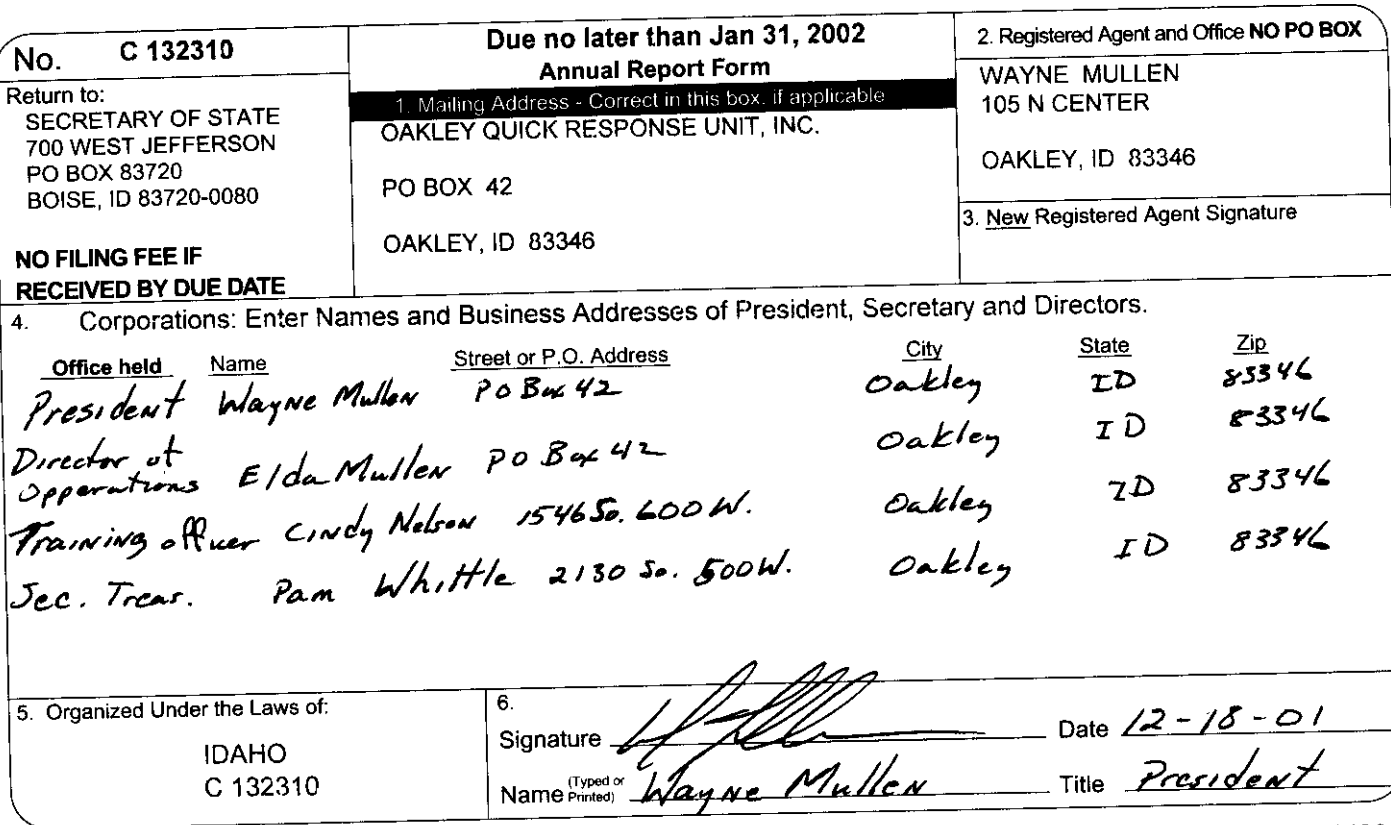 No. C 132310
Return to:
SECRETARY OF STATE
700 WEST JEFFERSON
PO BOX 83720
BOISE, ID 83720-0080
NO FILING FEE IF
RECEIVED BY DUE DATE
Due no later than Jan 31, 2002
Annual Report Form
1. Mailing Address - Correct in this box, if applicable
OAKLEY QUICK RESPONSE UNIT, INC.
PO BOX 42
OAKLEY, ID 83346
2. Registered Agent and Office NO PO BOX
WAYNE MULLEN
105 N CENTER
OAKLEY, ID 83346
3. New Registered Agent Signature
4. Corporations: Enter Names and Business Addresses of President, Secretary and Directors.
Office held Name Street or P.O. Address City State Zip
President Wayne Mullen PO Box 42 Oakley ID 83346
Director of
Opperations Elda Mullen PO Box 42 Oakley ID 83346
Training officer Cindy Nelson 1546 So. 600 W. Oakley ID 83346
Sec. Treas. Pam Whittle 2130 So. 500 W. Oakley ID 83346
5. Organized Under the Laws of:
IDAHO
C 132310
6.
Signature Date 12-18-01
Name (Typed or Printed) Wayne Mullen Title President